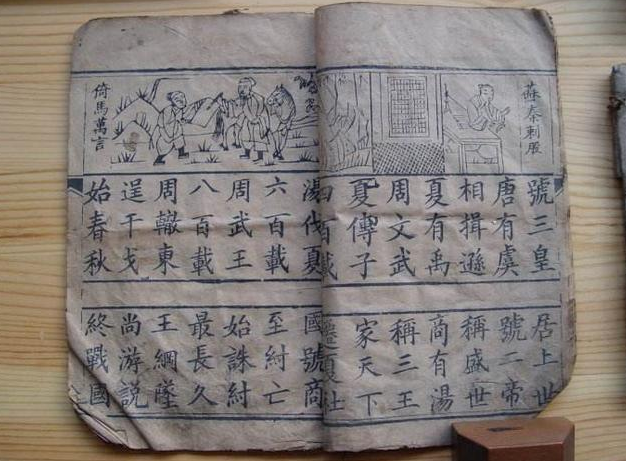 蘇秦刺股
號三皇 居上世
唐有虞 號二帝
相揖遜 稱盛世
夏有禹 商有湯
周文武 稱三王
夏傳子 家天下
四百載 遷夏社
倚馬萬言
湯伐夏 國號商
六百載 至紂亡
周武王 始誅紂
八百載 最長久
周轍東 王綱墜
逞干戈 尚游說
始春秋 終戰國